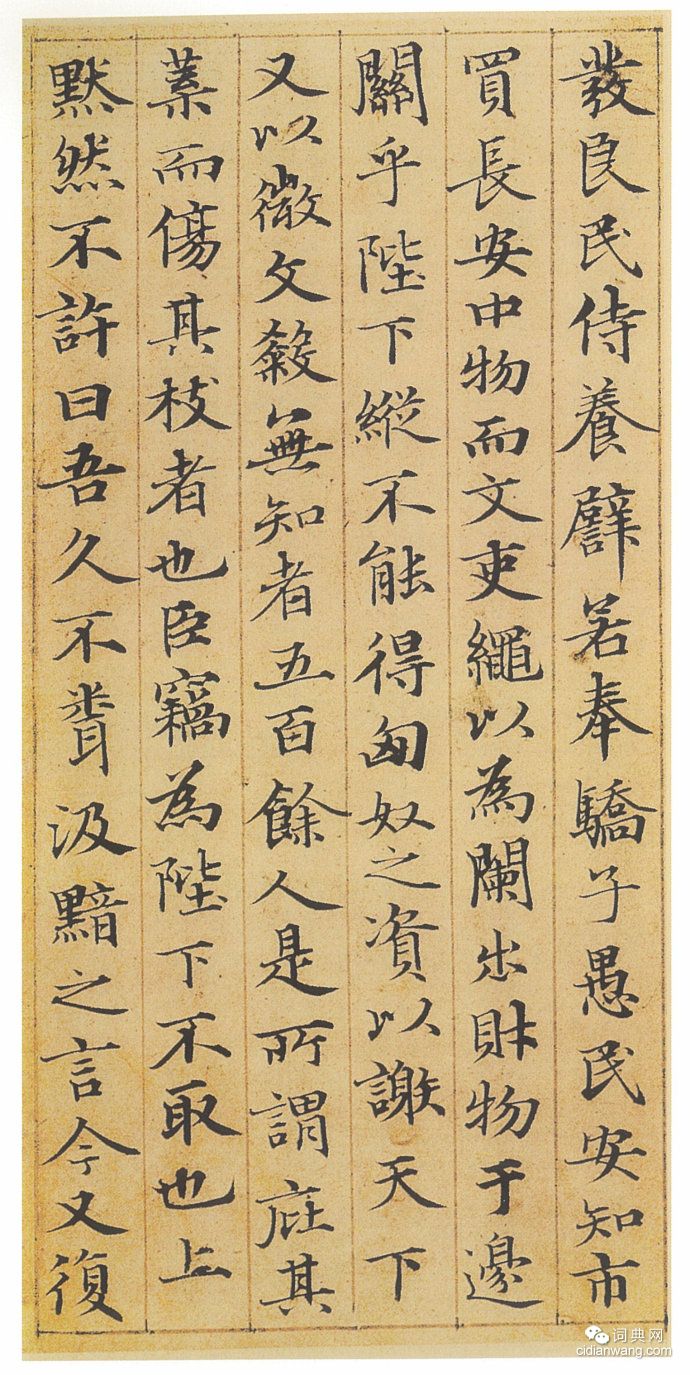 發良民侍養譬若奉驕子愚民安知市
買長安中物而文吏繩以為闌出財物于邊
關乎陛下縱不能得匈奴之資以謝天下
又以微文殺無知者五百餘人是所謂庇其
葉而傷其枝者也臣竊為陛下不取也上
默然不許曰吾久不聞汲黯之言今又復
词典网
cidianwang.com